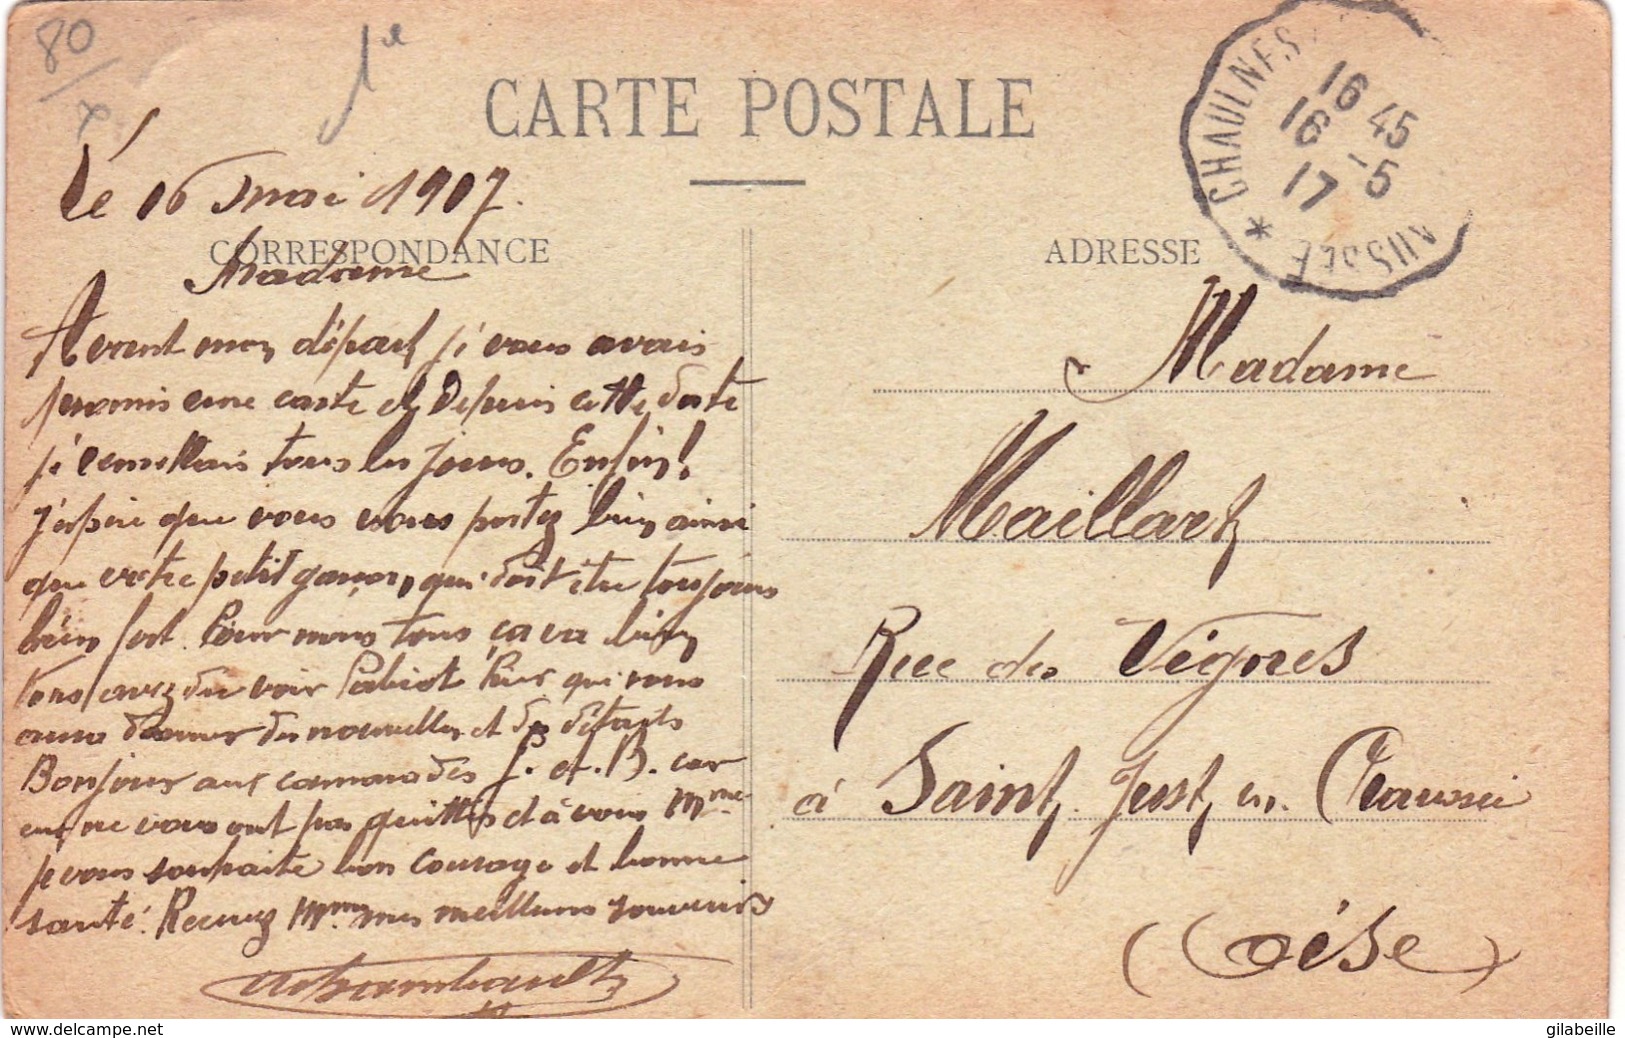 80
CARTE POSTALE
CHAULNES
16 45
16 -5
17
SOMME
Le 16 mai 1917.
CORRESPONDANCE
Madame
Avant mon départ je vous avais
promis une carte et Depuis cette date
je remettais tous les jours. Enfin!
J'espère que vous vous portez bien ainsi
que votre petit garçon, qui doit être toujours
bien fort. Pour nous tous ça va bien
Vous avez du voir Pabiot hier qui vous
aura donner des nouvelles et des détails
Bonjour aux camarades L. et B. car
eux ne vous ont pas quittés et à vous Mme
je vous souhaite bon courage et bonne
santé. Recevez Mme mes meilleurs souvenirs
ADRESSE
Madame
Maillart
Rue des Vignes
à Saint Just en Chaussée
(Oise)
www.delcampe.net
gilabeille